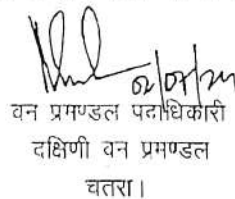 वन प्रमण्डल पदाधिकारी
दक्षिणी वन प्रमण्डल
चतरा।